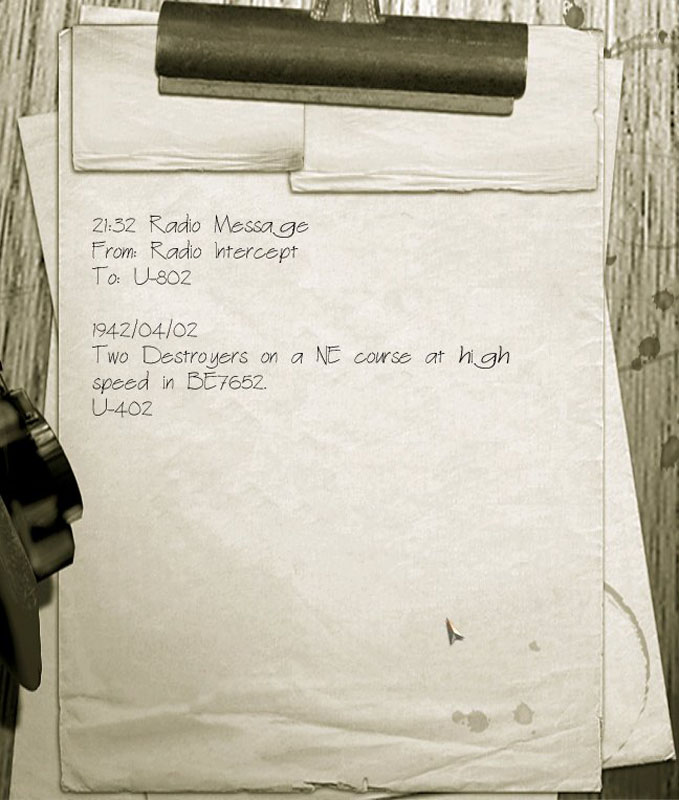 21:32 Radio Message
From: Radio Intercept
To: U-802
1942/04/02
Two Destroyers on a NE course at high
speed in BE7652.
U-402